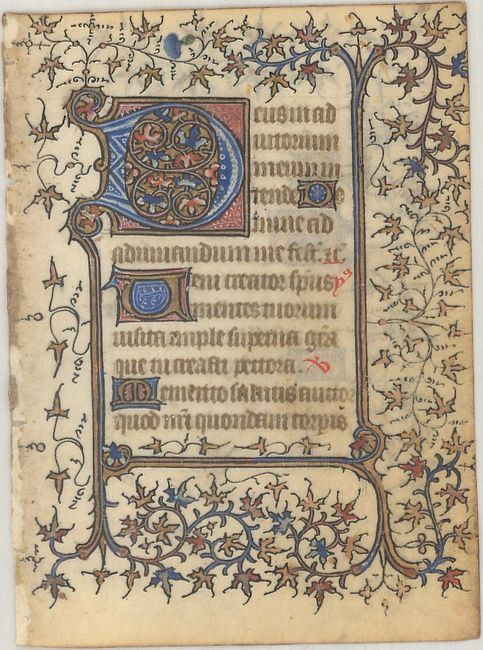 Deus in ad
iutorium
meum in
tende Do
mine ad
adiuuandum me festi. Gl'a
Veni creator sp̄us
mentes tuorum
uisita imple superna gr̄a
que tu creasti pectora.
Memento salutis auctor
quod nr̄i quondam corpis